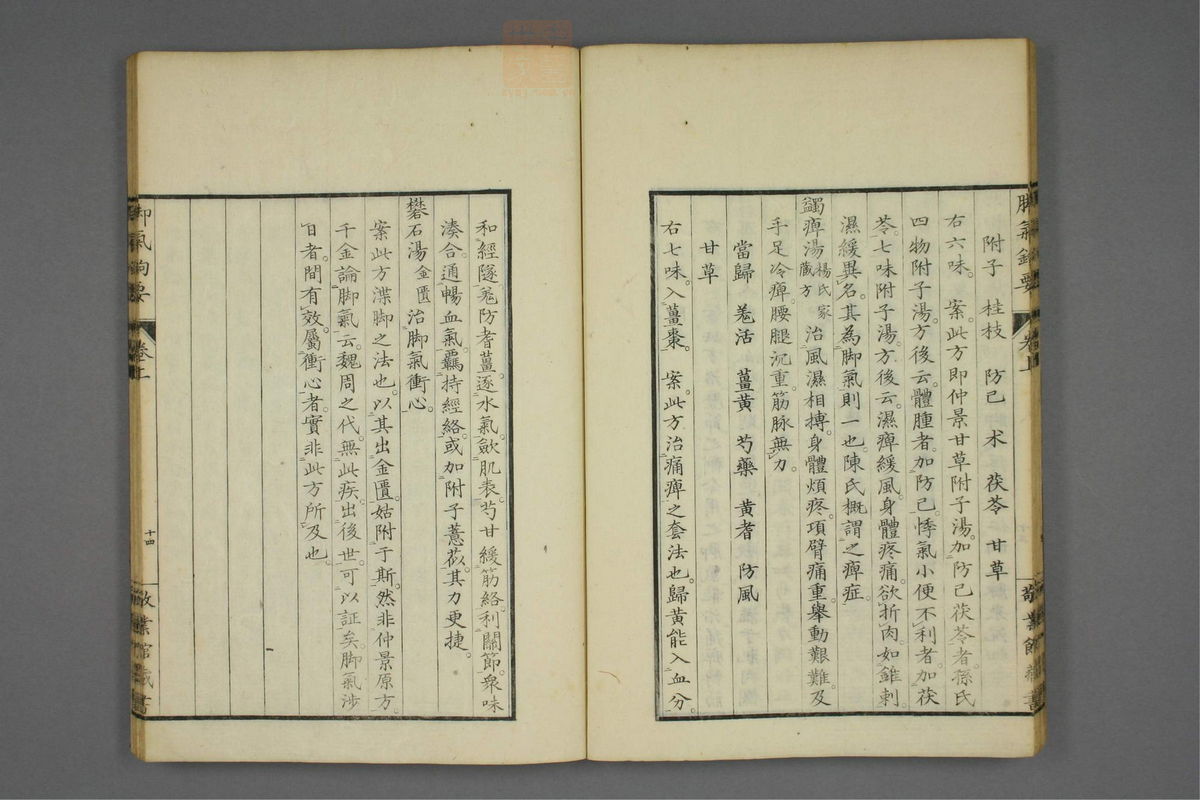 附子 桂枝 防已 术 茯苓 甘草
右六味。 案此方即仲景甘草附子湯。加防已茯苓者。孫氏
四物附子湯。方後云。體腫者。加防已。悸氣小便不利者。加茯
苓。七味附子湯。方後云。濕痺緩風。身體疼痛。欲折肉如錐刺。
濕緩異名。其為脚氣則一也。陳氏概謂之痺症。
蠲痺湯 楊氏家藏方 治風濕相搏。身體煩疼。項臂痛重。舉動艱難。及
手足冷痺。腰腿沉重。筋脉無力。
當歸 羗活 薑黃 芍藥 黃耆 防風
甘草
右七味。入薑棗。 案此方治痛痺之套法也。歸黃能入血分。
和經隧。羗防耆薑。逐水氣。歛肌表。芍甘緩筋絡。利關節。衆味
湊合。通暢血氣。覊持經絡。或加附子薏苡。其力更捷。
礬石湯 金匱 治脚氣衝心。
案此方渫脚之法也。以其出金匱。姑附于斯。然非仲景原方。
千金論脚氣云。魏周之代。無此疾。出後世。可以証矣。脚氣涉
日者。間有效。屬衝心者。實非此方所及也。
卷上
十四